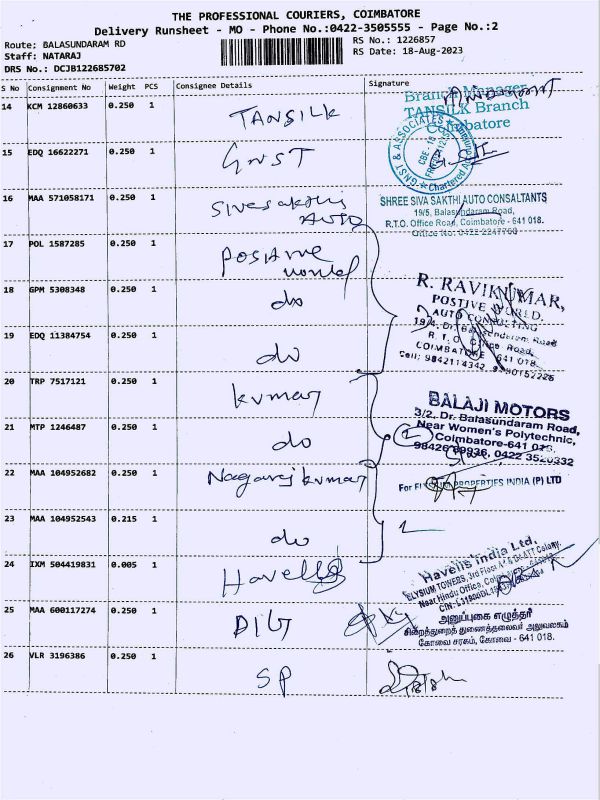 THE PROFESSIONAL COURIERS, COIMBATORE
Delivery Runsheet - MO - Phone No.:0422-3505555 - Page No.:2
Route: BALASUNDARAM RD
RS No.: 1226857
Staff: NATARAJ
RS Date: 18-Aug-2023
DRS No.: DCJB122685702
S No Consignment No Weight PCS Consignee Details Signature
14 KCM 12860633 0.250 1 TANSILK
Branch Manager
TANSILK Branch
Coimbatore
15 EDQ 16622271 0.250 1 GNST
GNST & ASSOCIATES
Chartered
16 MAA 571058171 0.250 1 Sivasakthi
AUTO
SHREE SIVA SAKTHI AUTO CONSALTANTS
19/5, Balasundaram Road,
R.T.O. Office Road, Coimbatore - 641 018.
Office No: 0422-2247768
17 POL 1587285 0.250 1 Positive
world
18 GPM 5308348 0.250 1 do
R. RAVIKUMAR,
POSTIVE WORLD.
AUTO CONSULTING
19/4, Dr. Balasundaram Road
R. T. O. Office Road,
COIMBATORE - 641 018.
Cell: 9842114342
19 EDQ 11384754 0.250 1 do
20 TRP 7517121 0.250 1 kumar
BALAJI MOTORS
3/2, Dr. Balasundaram Road,
Near Women's Polytechnic,
Coimbatore-641 018.
0422 3520332
21 MTP 1246487 0.250 1 do
22 MAA 104952682 0.250 1 Nagarajkumar
For PROPERTIES INDIA (P) LTD
23 MAA 104952543 0.215 1 do
24 IXM 504419831 0.005 1 Havells
Havells India Ltd.
ELYSIUM TOWERS, 3rd Floor
Near Hindu Office,
25 MAA 600117274 0.250 1 DIG
அனுப்புகை எழுத்தர்
சிறைத்துறை துணைத்தலைவர் அலுவலகம்
கோவை சரகம், கோவை - 641 018.
26 VLR 3196386 0.250 1 SP